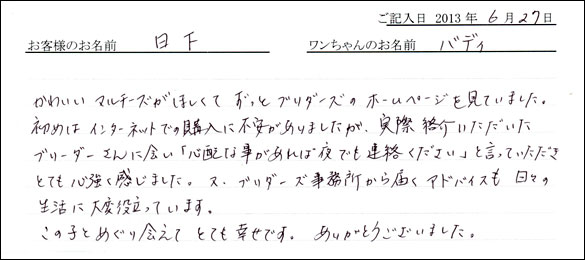 ご記入日 2013 年 6 月 27 日
お客様のお名前 日下 ワンちゃんのお名前 バディ
かわいい マルチーズがほしくて ずっと ブリーダーズの ホームページを見ていました。
初めは インターネットでの購入に不安がありましたが、実際 紹介いただいた
ブリーダーさんに会い「心配な事があれば夜でも連絡ください」と言っていただき
とても心強く感じました。又、ブリーダーズ事務所から届くアドバイスも 日々の
生活に大変役立っています。
この子とめぐり会えて とても幸せです。 ありがとうございました。